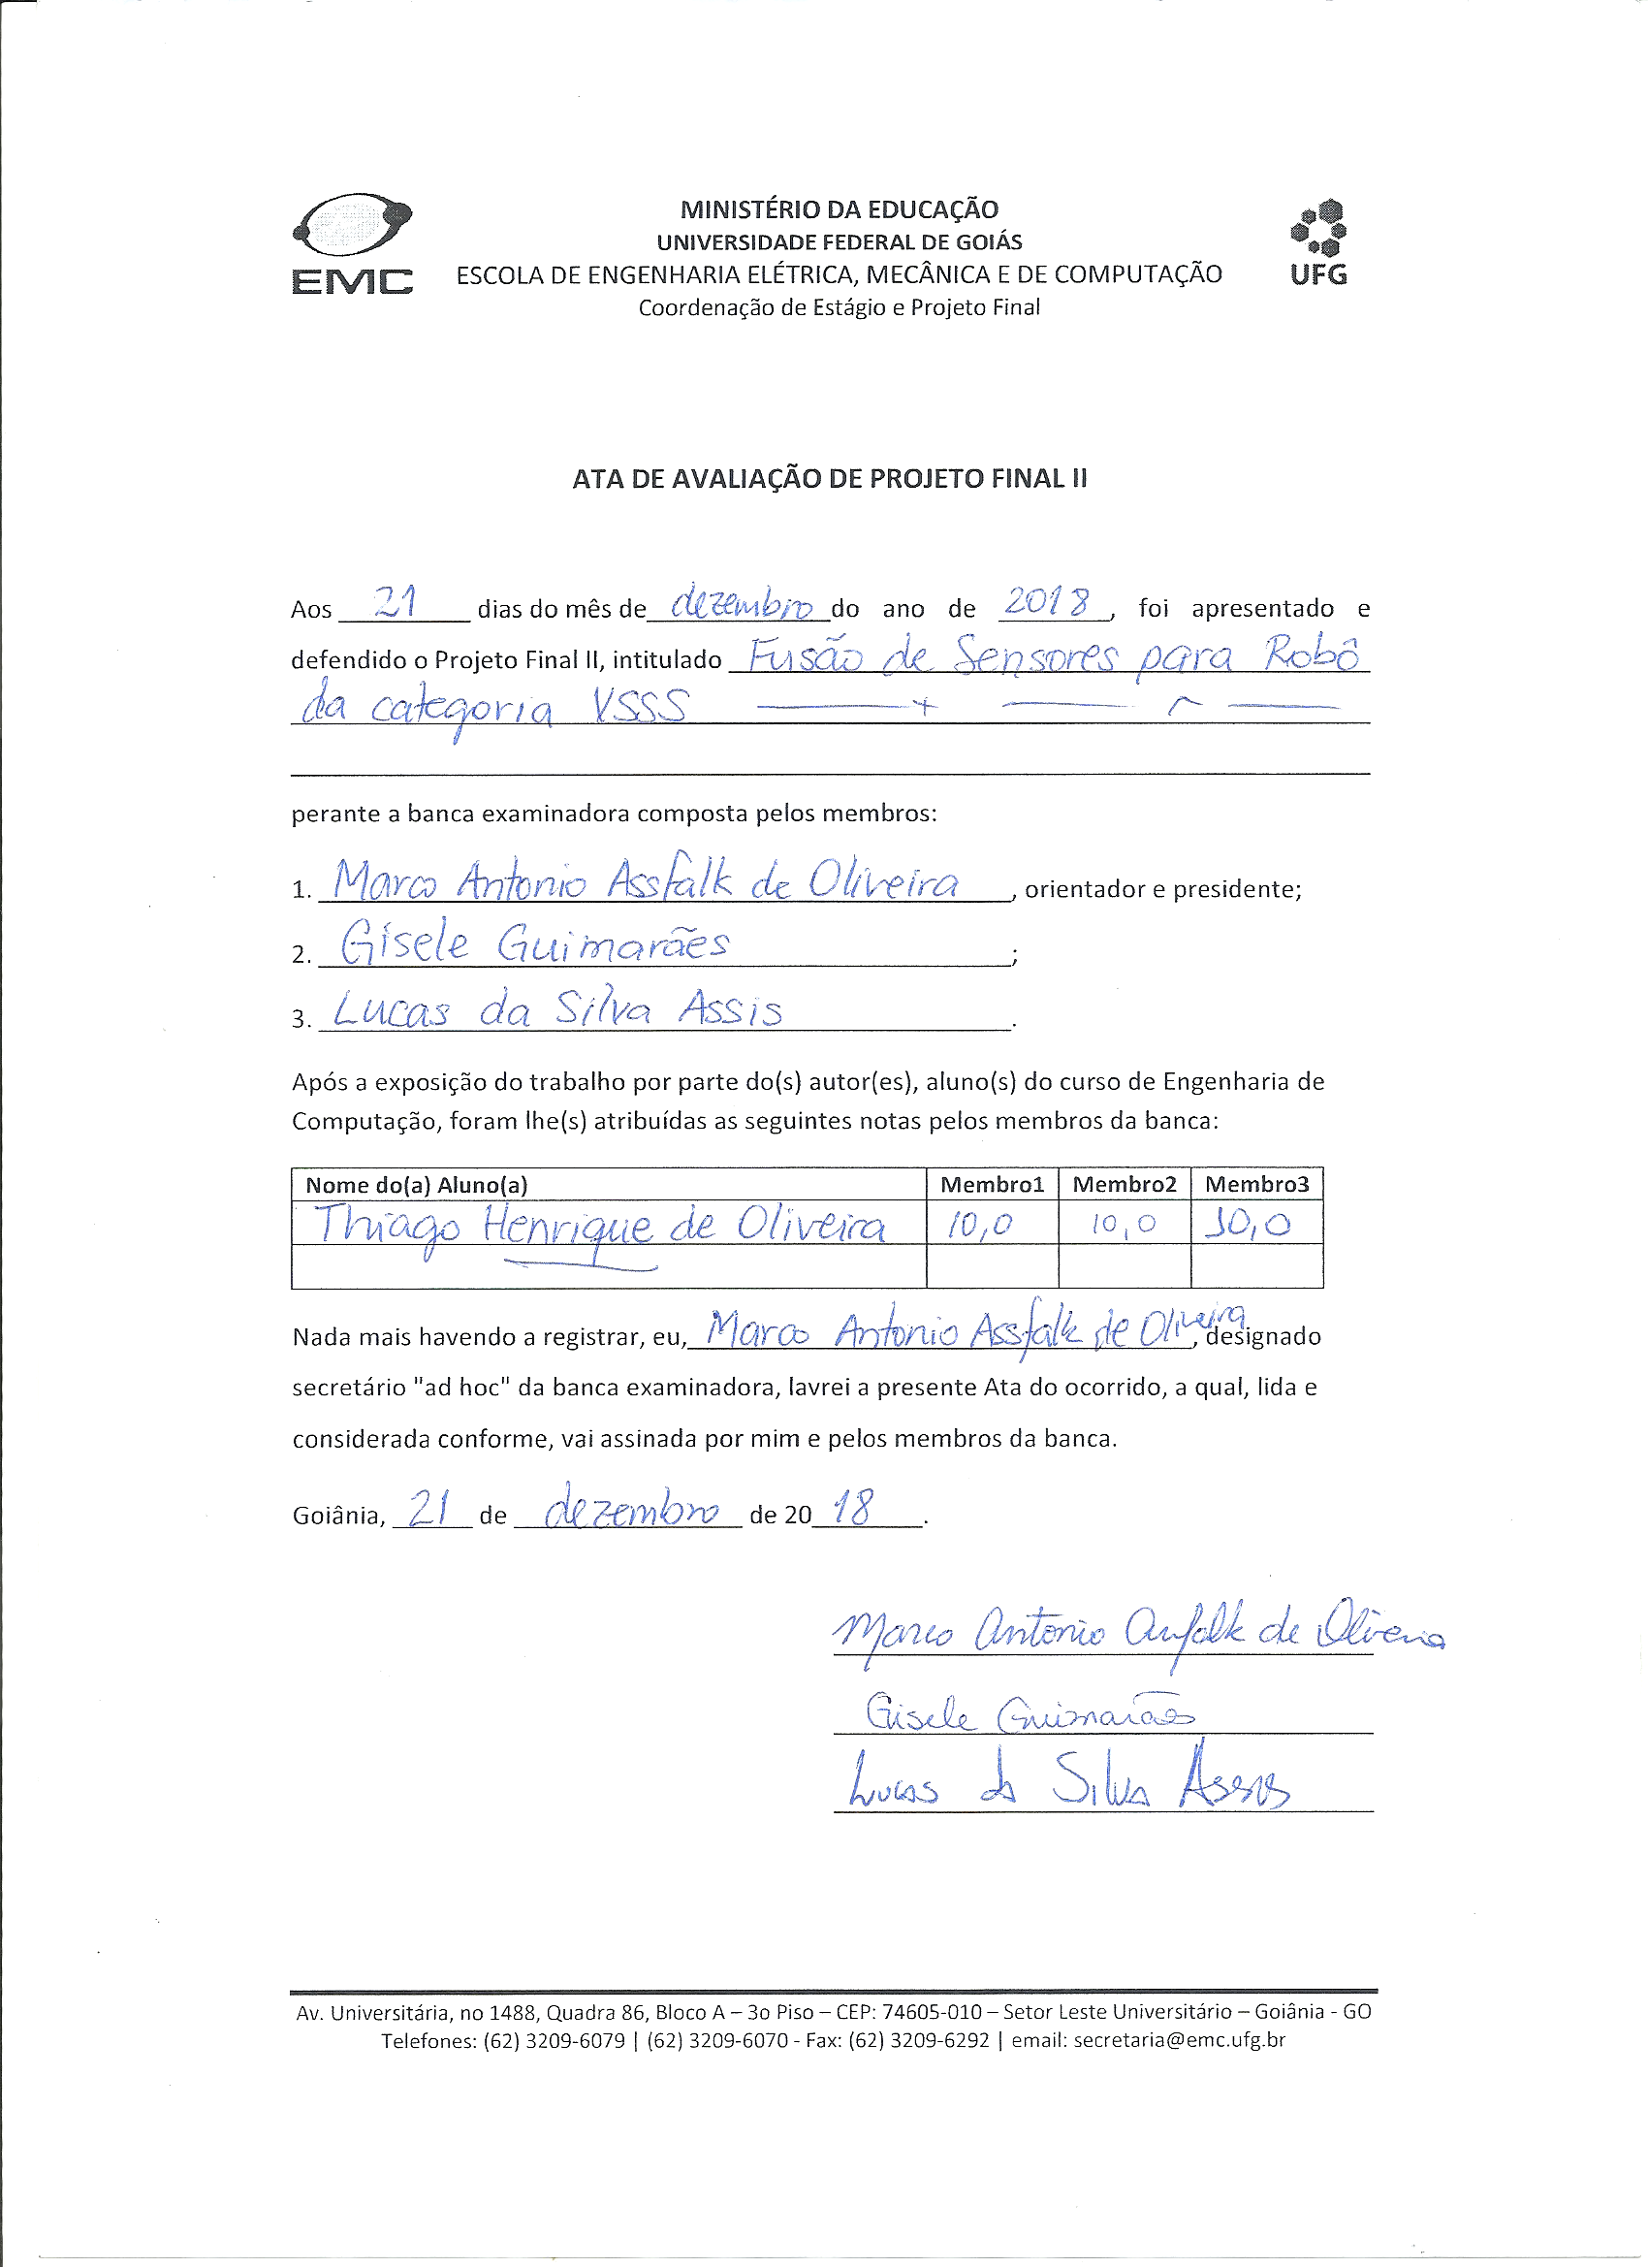 EMC
MINISTÉRIO DA EDUCAÇÃO
UNIVERSIDADE FEDERAL DE GOIÁS
ESCOLA DE ENGENHARIA ELÉTRICA, MECÂNICA E DE COMPUTAÇÃO
Coordenação de Estágio e Projeto Final
UFG
ATA DE AVALIAÇÃO DE PROJETO FINAL II
Aos 21 dias do mês de dezembro do ano de 2018, foi apresentado e
defendido o Projeto Final II, intitulado Fusão de Sensores para Robô
da categoria VSSS
perante a banca examinadora composta pelos membros:
1. Marco Antonio Assfalk de Oliveira, orientador e presidente;
2. Gisele Guimarães;
3. Lucas da Silva Assis.
Após a exposição do trabalho por parte do(s) autor(es), aluno(s) do curso de Engenharia de
Computação, foram lhe(s) atribuídas as seguintes notas pelos membros da banca:
Nome do(a) Aluno(a) Membro1 Membro2 Membro3
Thiago Henrique de Oliveira 10,0 10,0 10,0
Nada mais havendo a registrar, eu, Marco Antonio Assfalk de Oliveira, designado
secretário "ad hoc" da banca examinadora, lavrei a presente Ata do ocorrido, a qual, lida e
considerada conforme, vai assinada por mim e pelos membros da banca.
Goiânia, 21 de dezembro de 2018.
Marco Antonio Assfalk de Oliveira
Gisele Guimarães
Lucas da Silva Assis
Av. Universitária, no 1488, Quadra 86, Bloco A – 3o Piso – CEP: 74605-010 – Setor Leste Universitário – Goiânia - GO
Telefones: (62) 3209-6079 | (62) 3209-6070 - Fax: (62) 3209-6292 | email: secretaria@emc.ufg.br